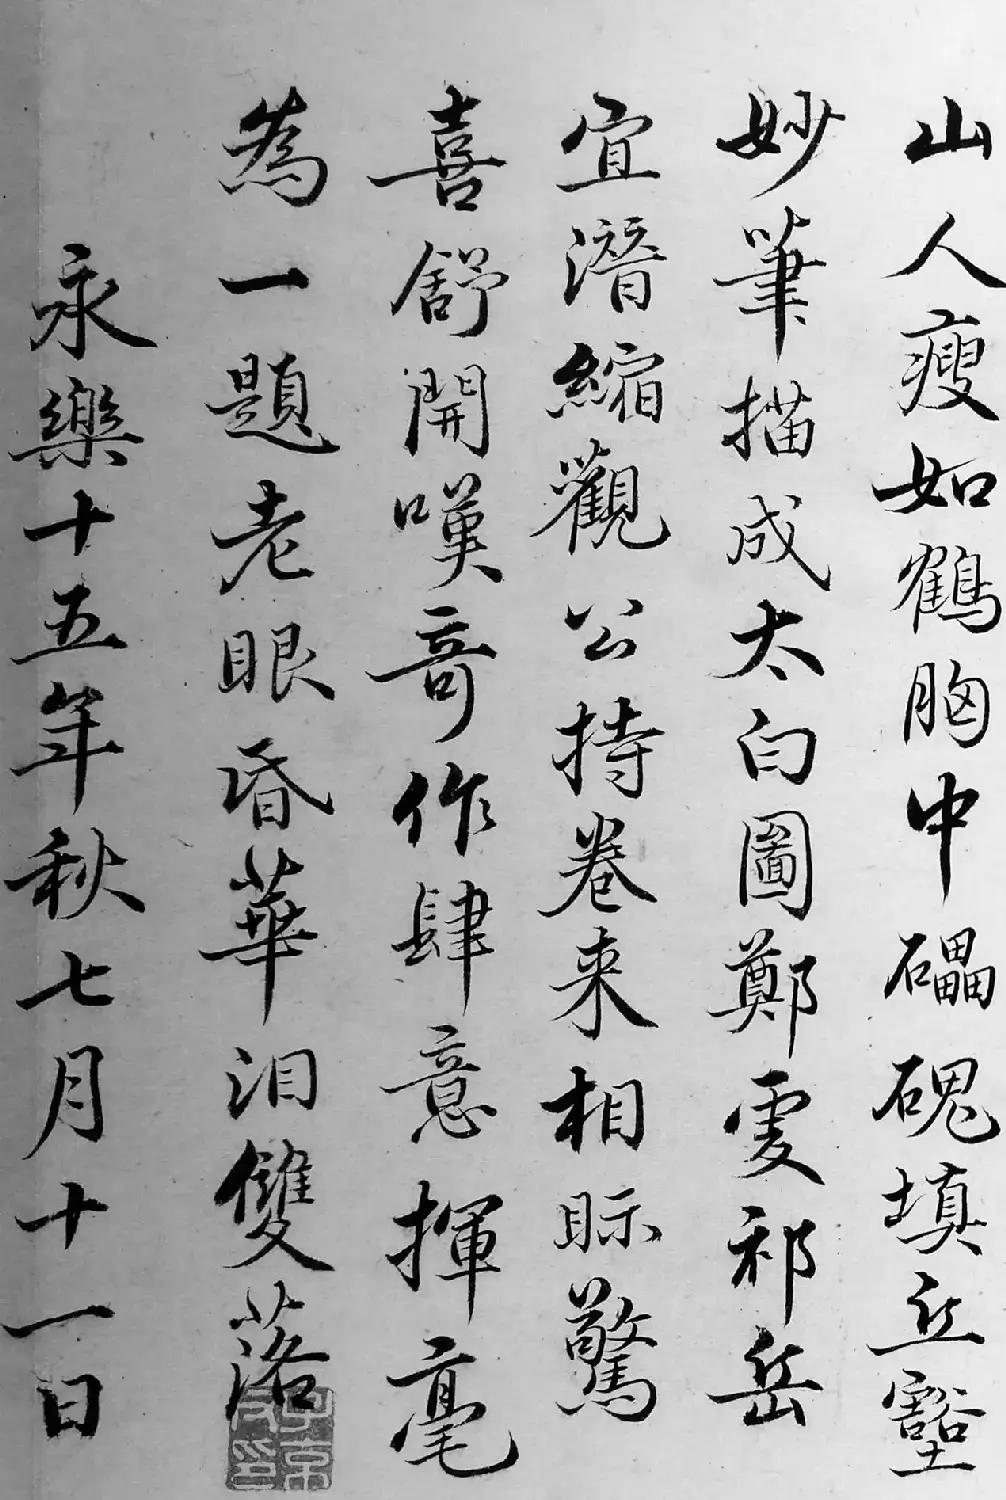 山人瘦如鶴胸中礧磈填丘壑
妙筆描成太白圖鄭虔祁岳
宜潛縮觀公持卷来相眎驚
喜舒開嘆哥作肆意揮毫
為一題老眼昏華泪雙落
永樂十五年秋七月十一日